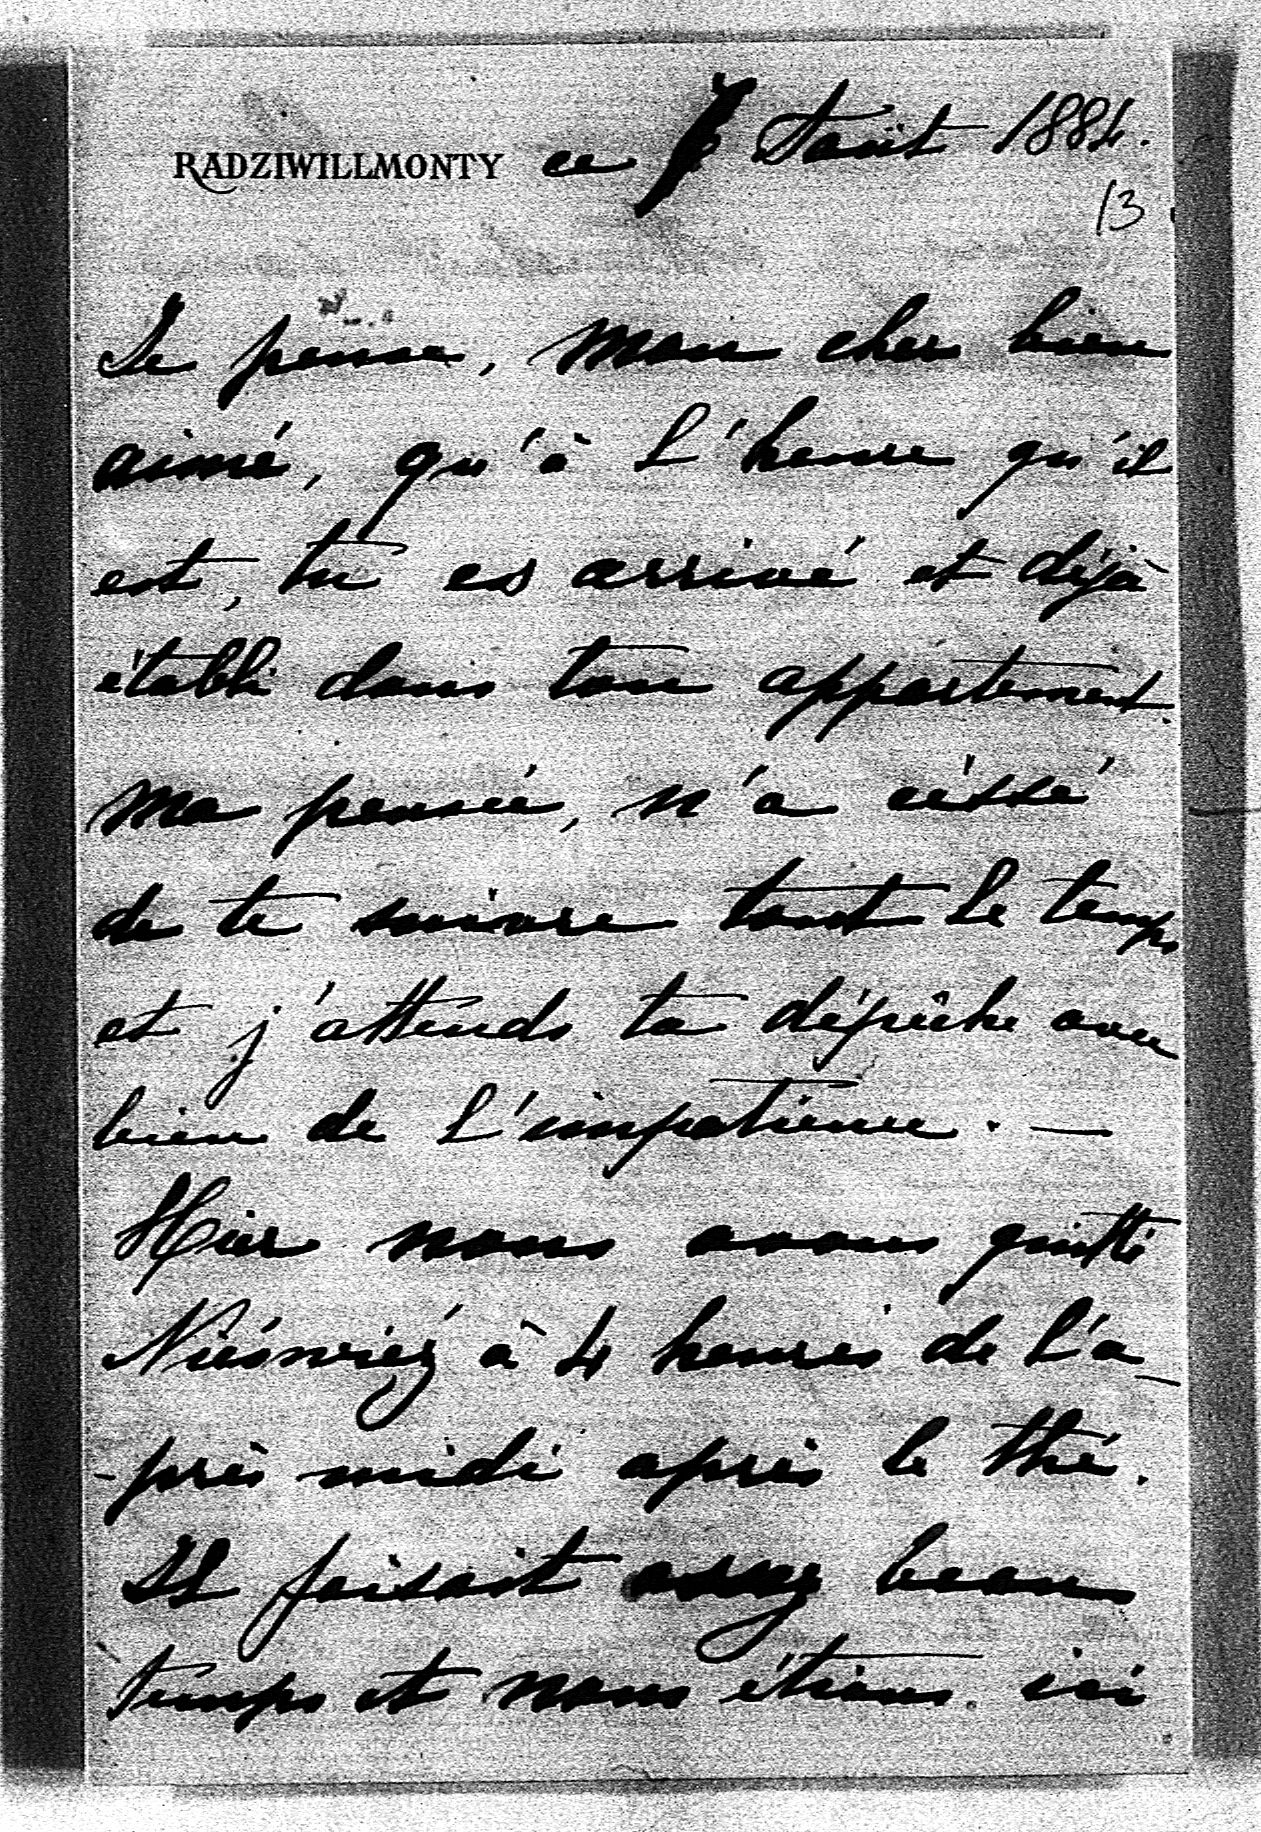 RADZIWILLMONTY ce Août 1884.
13.
Je pense, mon cher bien
aimé, qu'à l'heure qu'il
est, tu es arrivé et déjà
établi dans ton appartement.
ma pensée, n'a céssé
de te suivre tout le temps
et j'attends ta dépêche avec
bien de l'impatience. —
Hier nous avons quitté
à 4 heures de l'a-
-près midi après le thé.
Il faisait assez beau
temps et nous étions ici